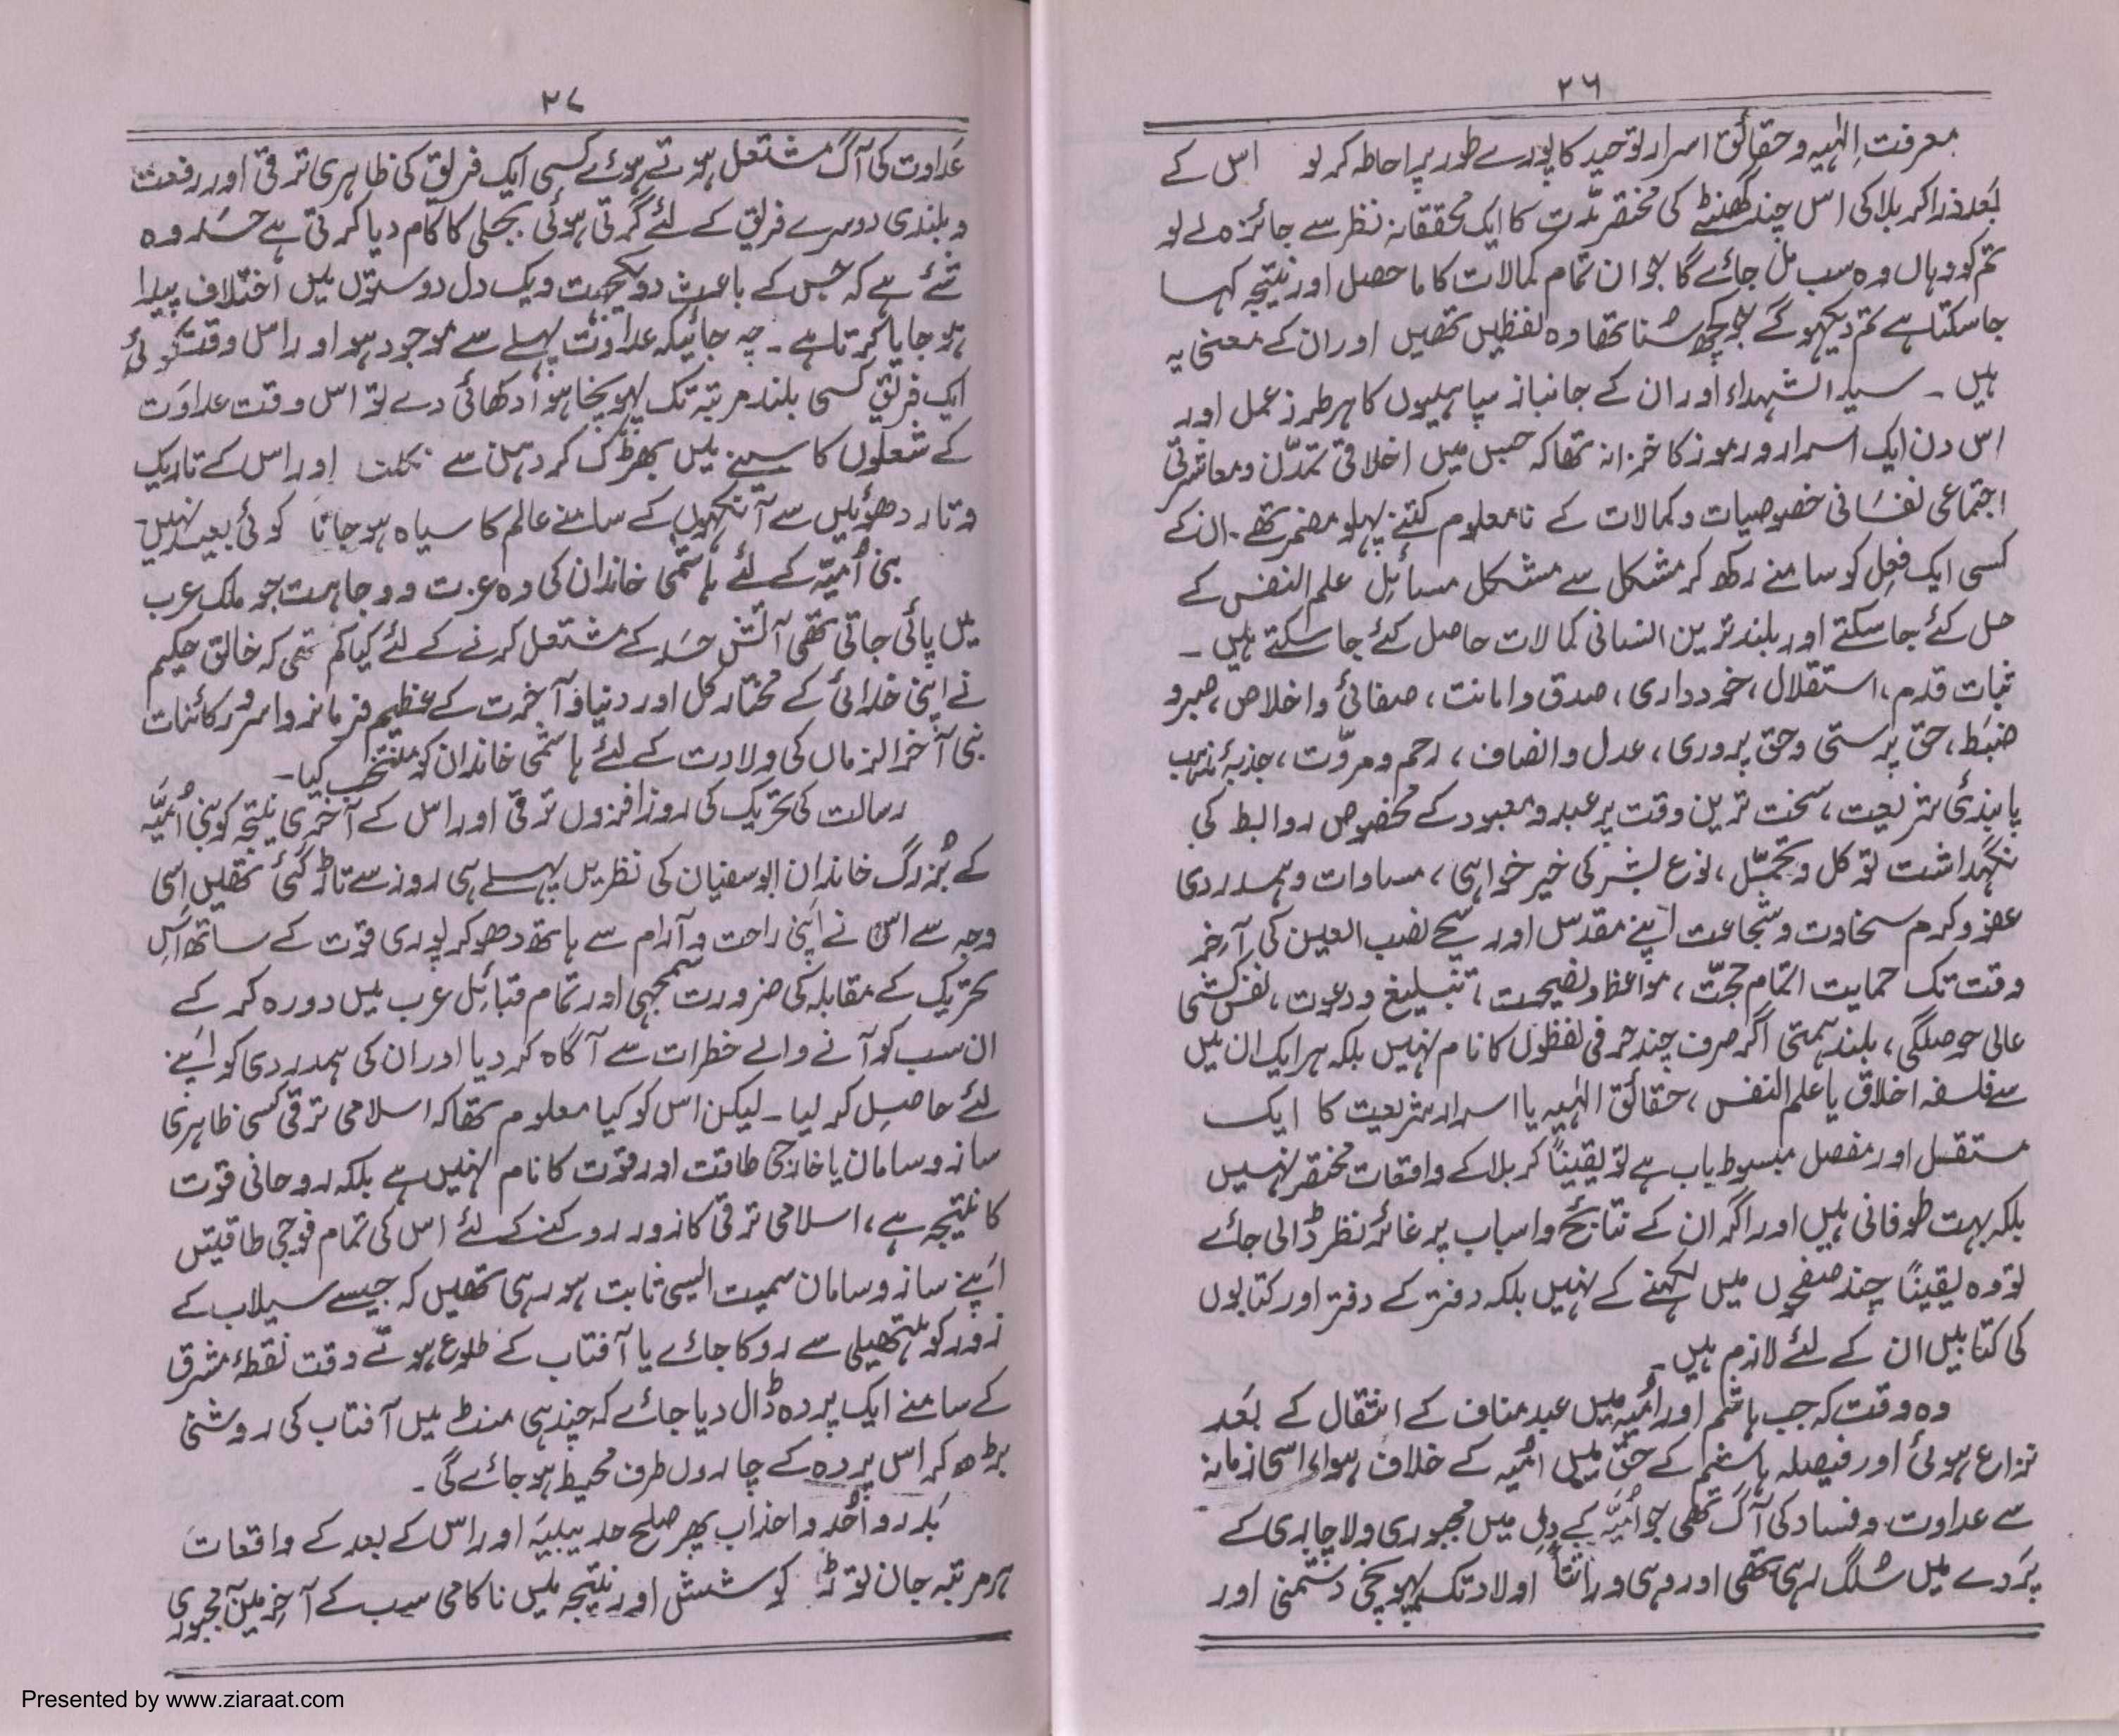 ۲۶
معرفتِ الٰہیہ و حقائق اسرار توحید کا پورے طور پر احاطہ کر لو اس کے
بَعد ذرا کربلا کی اس چند گھنٹے کی مختصر مدّت کا ایک محققانہ نظر سے جائزہ لے لو
تم کو وہاں وہ سب مل جائے گا جو ان تمام کمالات کا ماحصل اور نتیجہ کہا
جا سکتا ہے تم دیکھو گے جو کچھ سُنا تھا وہ لفظیں تھیں اور ان کے معنی یہ
ہیں ۔ سید الشہداء اور ان کے جانباز سپاہیوں کا ہر طرز عمل اور
اس دن ایک اسرار و رموز کا خزانہ تھا کہ جس میں اخلاقی تمدّن و معاشرتی
اجتماعی نفسَانی خصوصیات و کمالات کے نامعلوم کتنے پہلو مضمر تھے ۔ ان کے
کسی ایک فِعل کو سامنے رکھ کر مشکل سے مشکل مسائل علم النفس کے
حل کئے جا سکتے اور بلند ترین انسانی کمالات حاصل کئے جا سکتے ہیں ۔
ثبات قدم، استقلال، خود داری، صدق و امانت، صفائی و اخلاص، صبر و
ضبَط، حق پرستی و حق پروری، عدل و انصاف، رحم و مروّت، جذبۂ مذہب
پابندیٔ شریعت، سخت ترین وقت پر عبد و معبود کے مخصوص روابط کی
نگہداشت توکل و تحمّل، نوع بشر کی خیر خواہی، مساوات و ہمدردی
عفو و کرم سخاوت و شجاعت اپنے مقدس اور سچے نصب العین کی آخر
وقت تک حمایت اتمام حجّت، مواعظ و نصیحت، تبلیغ و دعوت، نفس کشی
عالی حوصلگی، بلند ہمتی اگر صرف چند حرفی لفظوں کا نام نہیں بلکہ ہر ایک ان میں
سے فلسفہ اخلاق یا علم النفس، حقائق الٰہیہ یا اسرار شریعت کا ایک
مستقل اور مفصل مبسوط باب ہے تو یقیناً کربلا کے واقعات مختصر نہیں
بلکہ بہت طوفانی ہیں اور اگر ان کے نتائج و اسباب پر غائر نظر ڈالی جائے
تو وہ یقیناً چند صفحوں میں لکھنے کے نہیں بلکہ دفتر کے دفتر اور کتابوں
کی کتابیں ان کے لئے لازم ہیں ۔
وہ وقت کہ جب ہاشم اور اُمیہ میں عبد مناف کے انتقال کے بَعد
نزاع ہوئی اور فیصلہ ہاشم کے حق میں اُمیہ کے خلاف ہوا، اسی زمانہ
سے عداوت و فساد کی آگ تھی جو اُمیّہ کے دِل میں مجبوری و لاچاری کے
پَردے میں سُلگ رہی تھی اور وہی وراثتاً اولاد تک پہونچی دشمنی اور
۲۷
عَداوت کی آگ مشتعل ہوتے ہوئے کسی ایک فریق کی ظاہری ترقی اور رفعت
و بلندی دوسرے فریق کے لئے گرتی ہوئی بجلی کا کام دیا کرتی ہے حسَد وہ
شئے ہے کہ جس کے باعث دو یکجہت و یک دل دوستوں میں اختلاف پیدا
ہو جایا کرتا ہے ۔ چہ جائیکہ عداوت پہلے سے موجود ہو اور اس وقت کوئی
ایک فریق کسی بلند مرتبہ تک پہونچا ہوا دکھائی دے تو اس وقت عداوَت
کے شعلوں کا سینے میں بھڑک کر دہن سے نکلنا اور اس کے تاریک
و تار دھوئیں سے آنکھوں کے سامنے عالم کا سیاہ ہو جانا کوئی بعید نہیں ۔
بنی اُمیّہ کے لئے ہاشمی خاندان کی وہ عزت و وجاہت جو ملک عرب
میں پائی جاتی تھی آتش حسَد کے مشتعل کرنے کے لئے کیا کم تھی کہ خالق حکیم
نے اپنی خدائی کے مختار کل اور دنیا و آخرت کے عظیم فرمانروا سرور کائنات
نبی آخر الزماں کی ولادت کے لئے ہاشمی خاندان کو منتخب کیا ۔
رسالت کی تحریک کی روز افزوں ترقی اور اس کے آخری نتیجہ کو بنی اُمیَّہ
کے بُزرگ خاندان ابوسفیان کی نظریں پہلے ہی روز سے تاڑ گئی تھیں اسی
وجہ سے اس نے اپنی راحت و آرام سے ہاتھ دھو کر پوری قوت کے ساتھ اس
تحریک کے مقابلہ کی ضرورت سمجھی اور تمام قبائل عرب میں دورہ کر کے
ان سب کو آنے والے خطرات سے آگاہ کر دیا اور ان کی ہمدردی کو اپنے
لئے حاصِل کر لیا ۔ لیکن اس کو کیا معلوم تھا کہ اسلامی ترقی کسی ظاہری
ساز و سامان یا خارجی طاقت اور قوت کا نام نہیں ہے بلکہ روحانی قوت
کا نتیجہ ہے، اسلامی ترقی کا زور روکنے کے لئے اس کی تمام فوجی طاقیتں
اَپنے ساز و سامان سمیت ایسی ثابت ہو رہی تھیں کہ جیسے سیلاب کے
زور کو ہتھیلی سے روکا جائے یا آفتاب کے طلوع ہوتے وقت نقطۂ مشرق
کے سامنے ایک پردہ ڈال دیا جائے کہ چند ہی منٹ میں آفتاب کی روشنی
بڑھ کر اس پردہ کے چاروں طرف محیط ہو جائے گی ۔
بَدر و اُحُد و احزاب پھر صلح حدیبیَہ اور اس کے بعد کے واقعات
ہر مرتبہ جان توڑ کوشش اور نتیجہ میں ناکامی سب کے آخر میں مجبوری
Presented by www.ziaraat.com